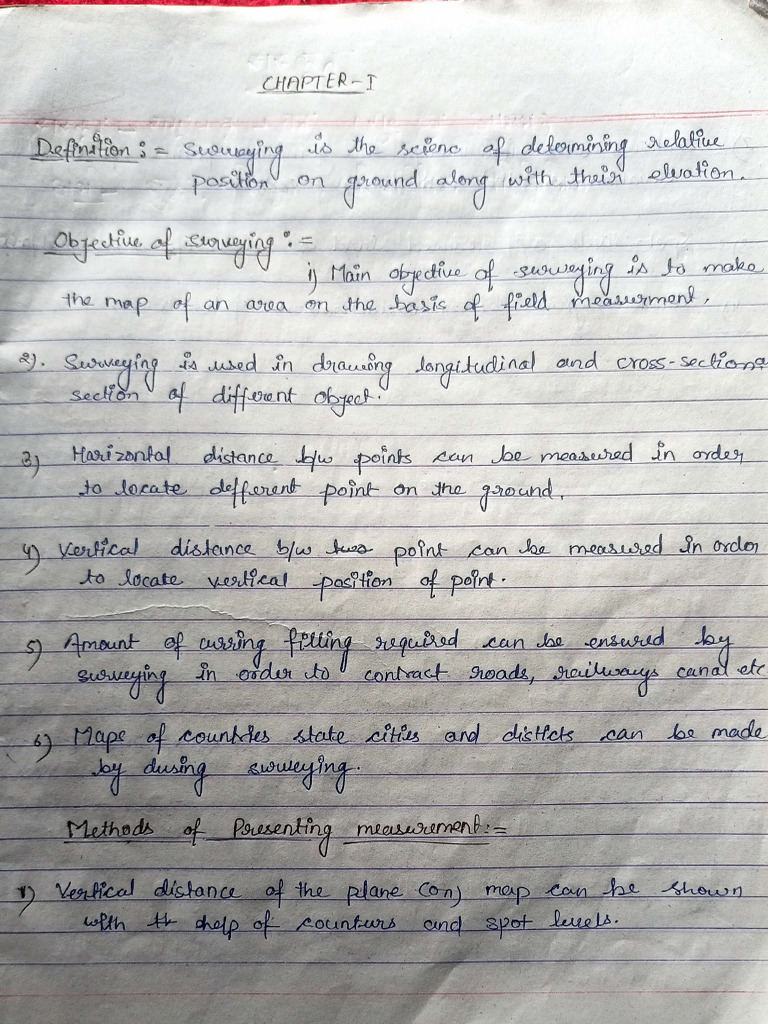 CHAPTER-I
Definition := Surveying is the scienc of determining relative
position on ground along with their elvation.
Objective of surveying :=
i) Main objective of surveying is to make
the map of an area on the basis of field measurment.
2). Surveying is used in drawing longitudinal and cross-sections
section of different object.
3) Harizontal distance b/w points can be measured in order
to locate defferent point on the ground.
4) Vertical distance b/w two point can be measured in order
to locate vertical position of point.
5) Amount of curring filling required can be ensured by
surveying in order to contract roads, railways canal etc
6) Maps of countries state cities and disticts can be made
by dusing surveying.
Methods of Presenting measurement:=
1) Vertical distance of the plane (on) map can be shown
with th dhelp of counturs and spot levels.